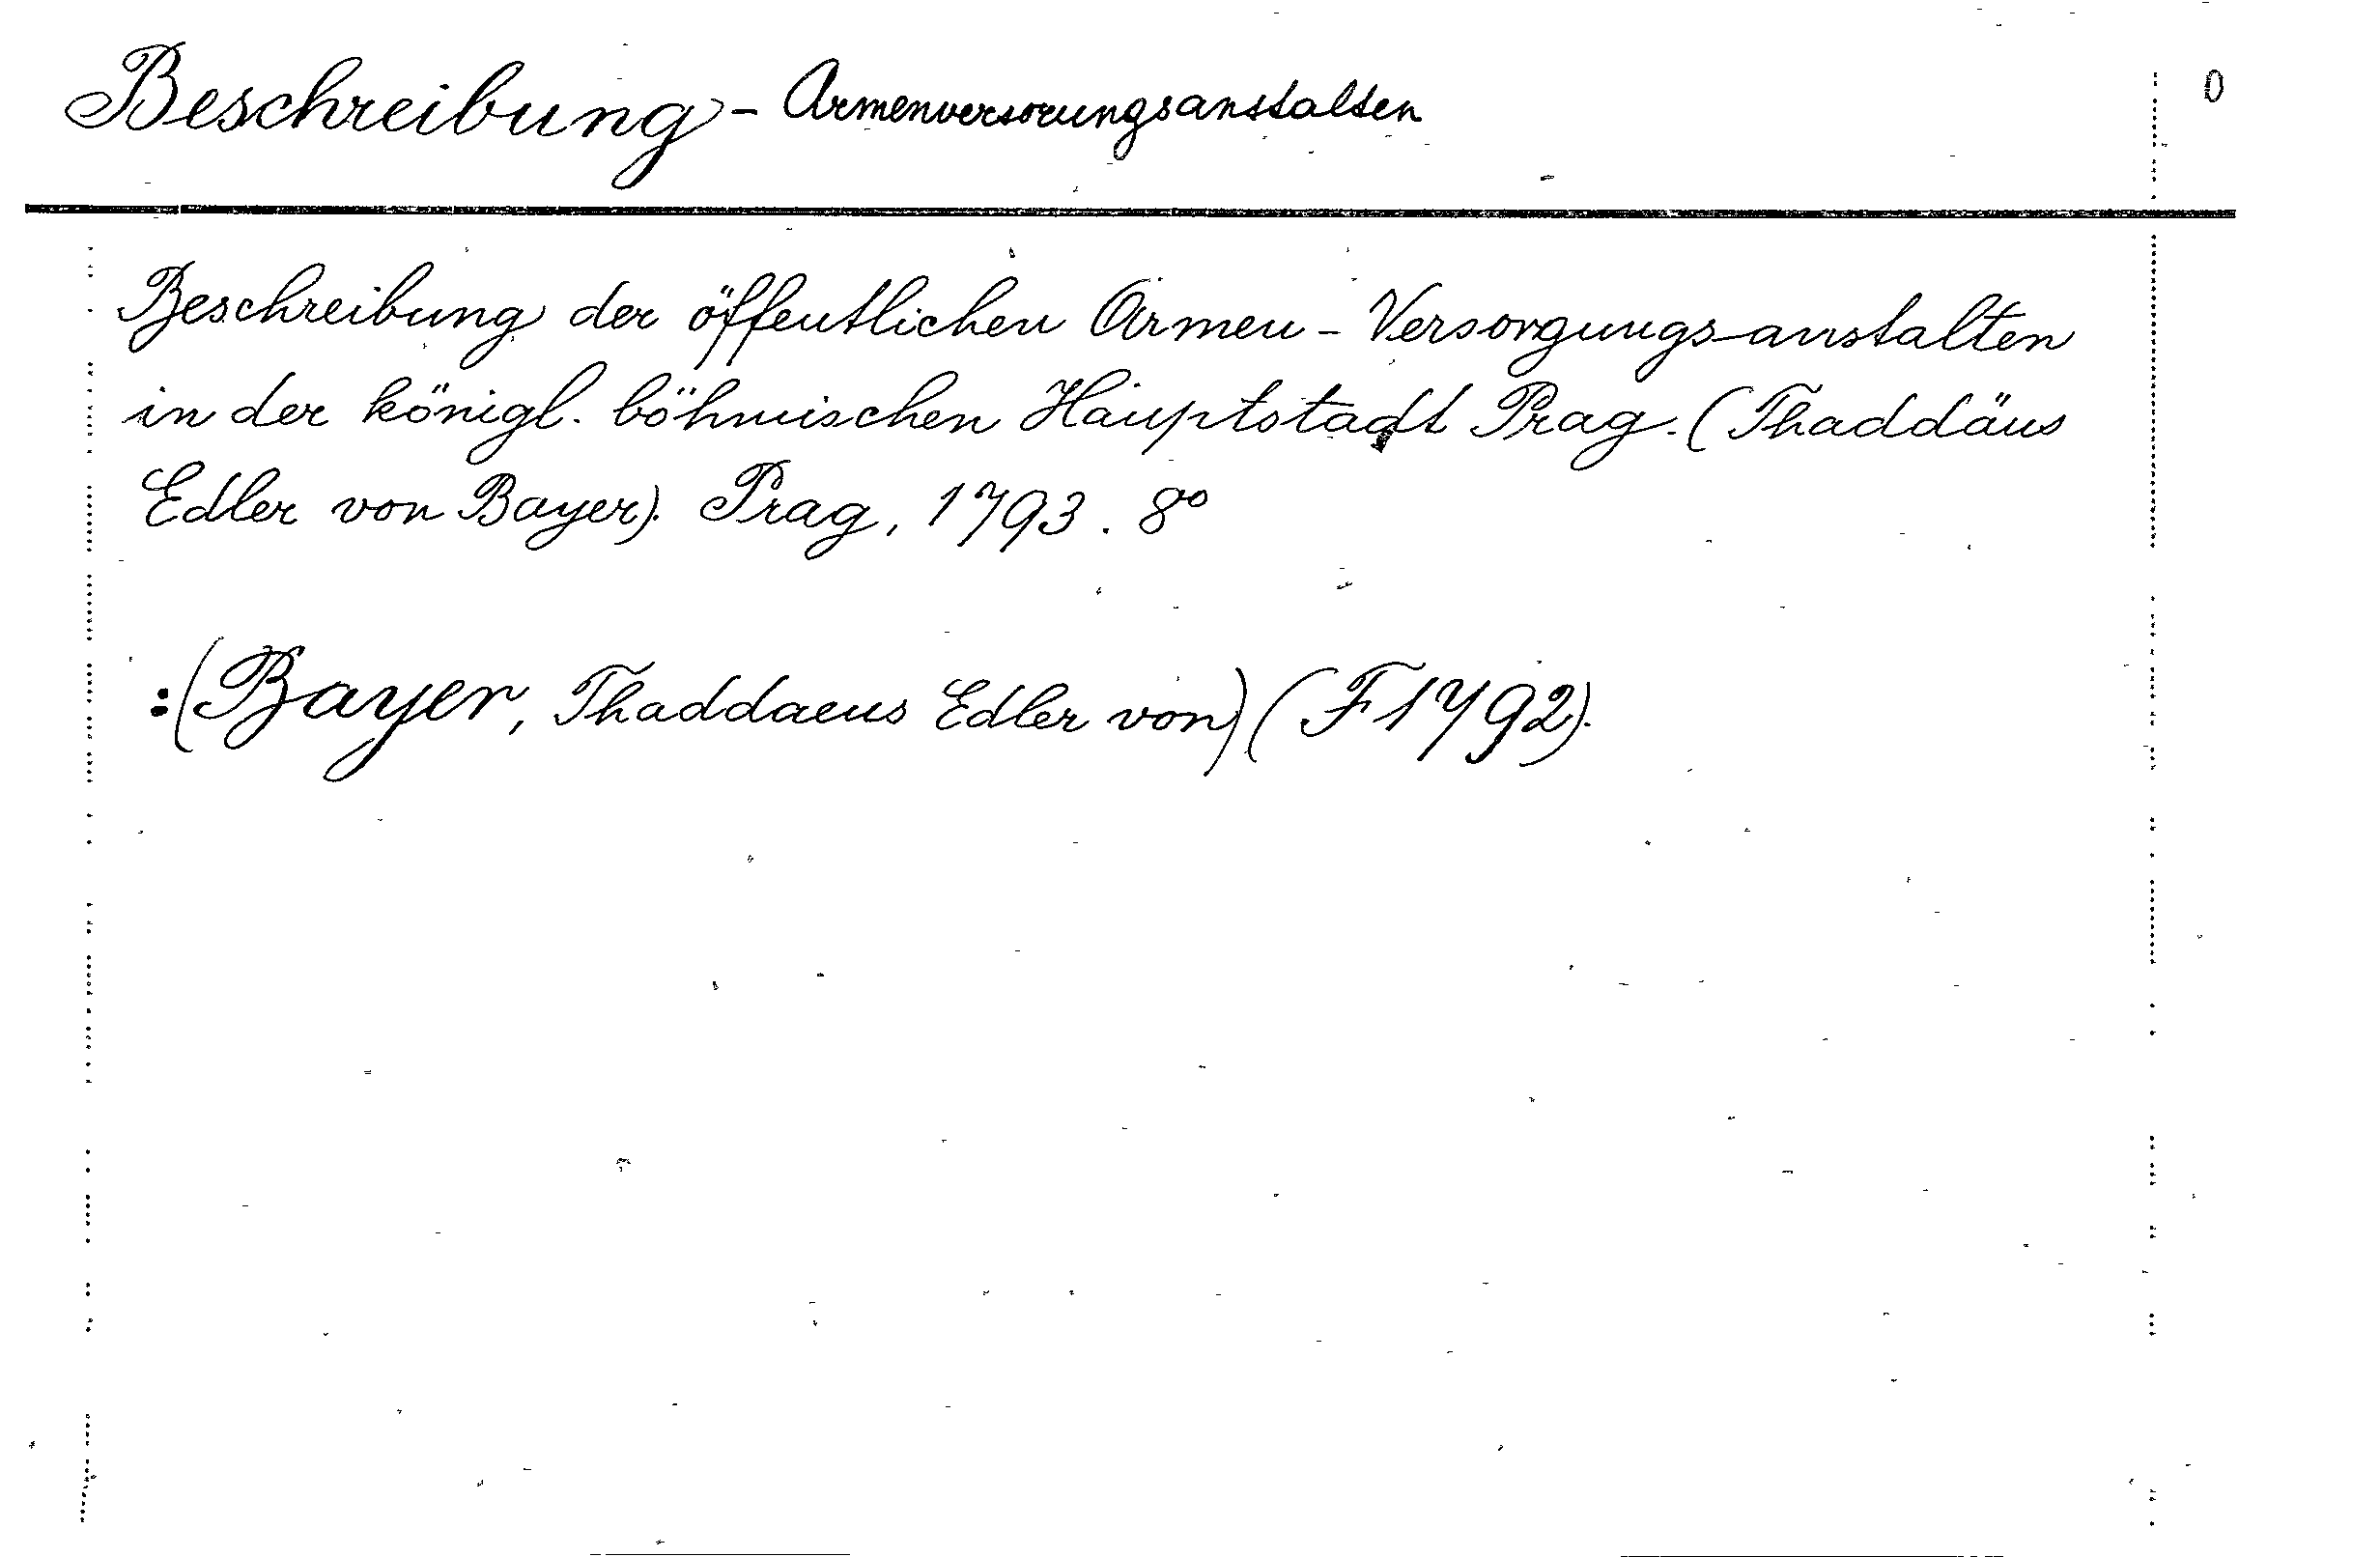 Beschreibung - Armenversorungsanstalten
0
Beschreibung der öffentlichen Armen - Versorgungs-anstalten
in der königl. böhmischen Hauptstadt Prag. (Thaddäus
Edler von Bayer). Prag, 1793. 8°
:(Bayer, Thaddaeus Edler von) (F 1792).